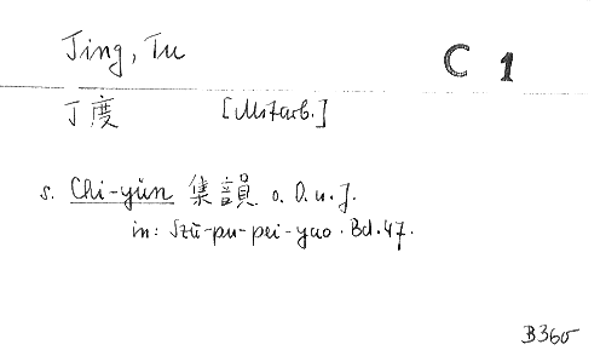 Ting, Tu C 1
丁度 [Mitarb.]
s. Chi-yün 集韻 o. O. u. J.
in: Szŭ-pu-pei-yao. Bd. 47.
B360